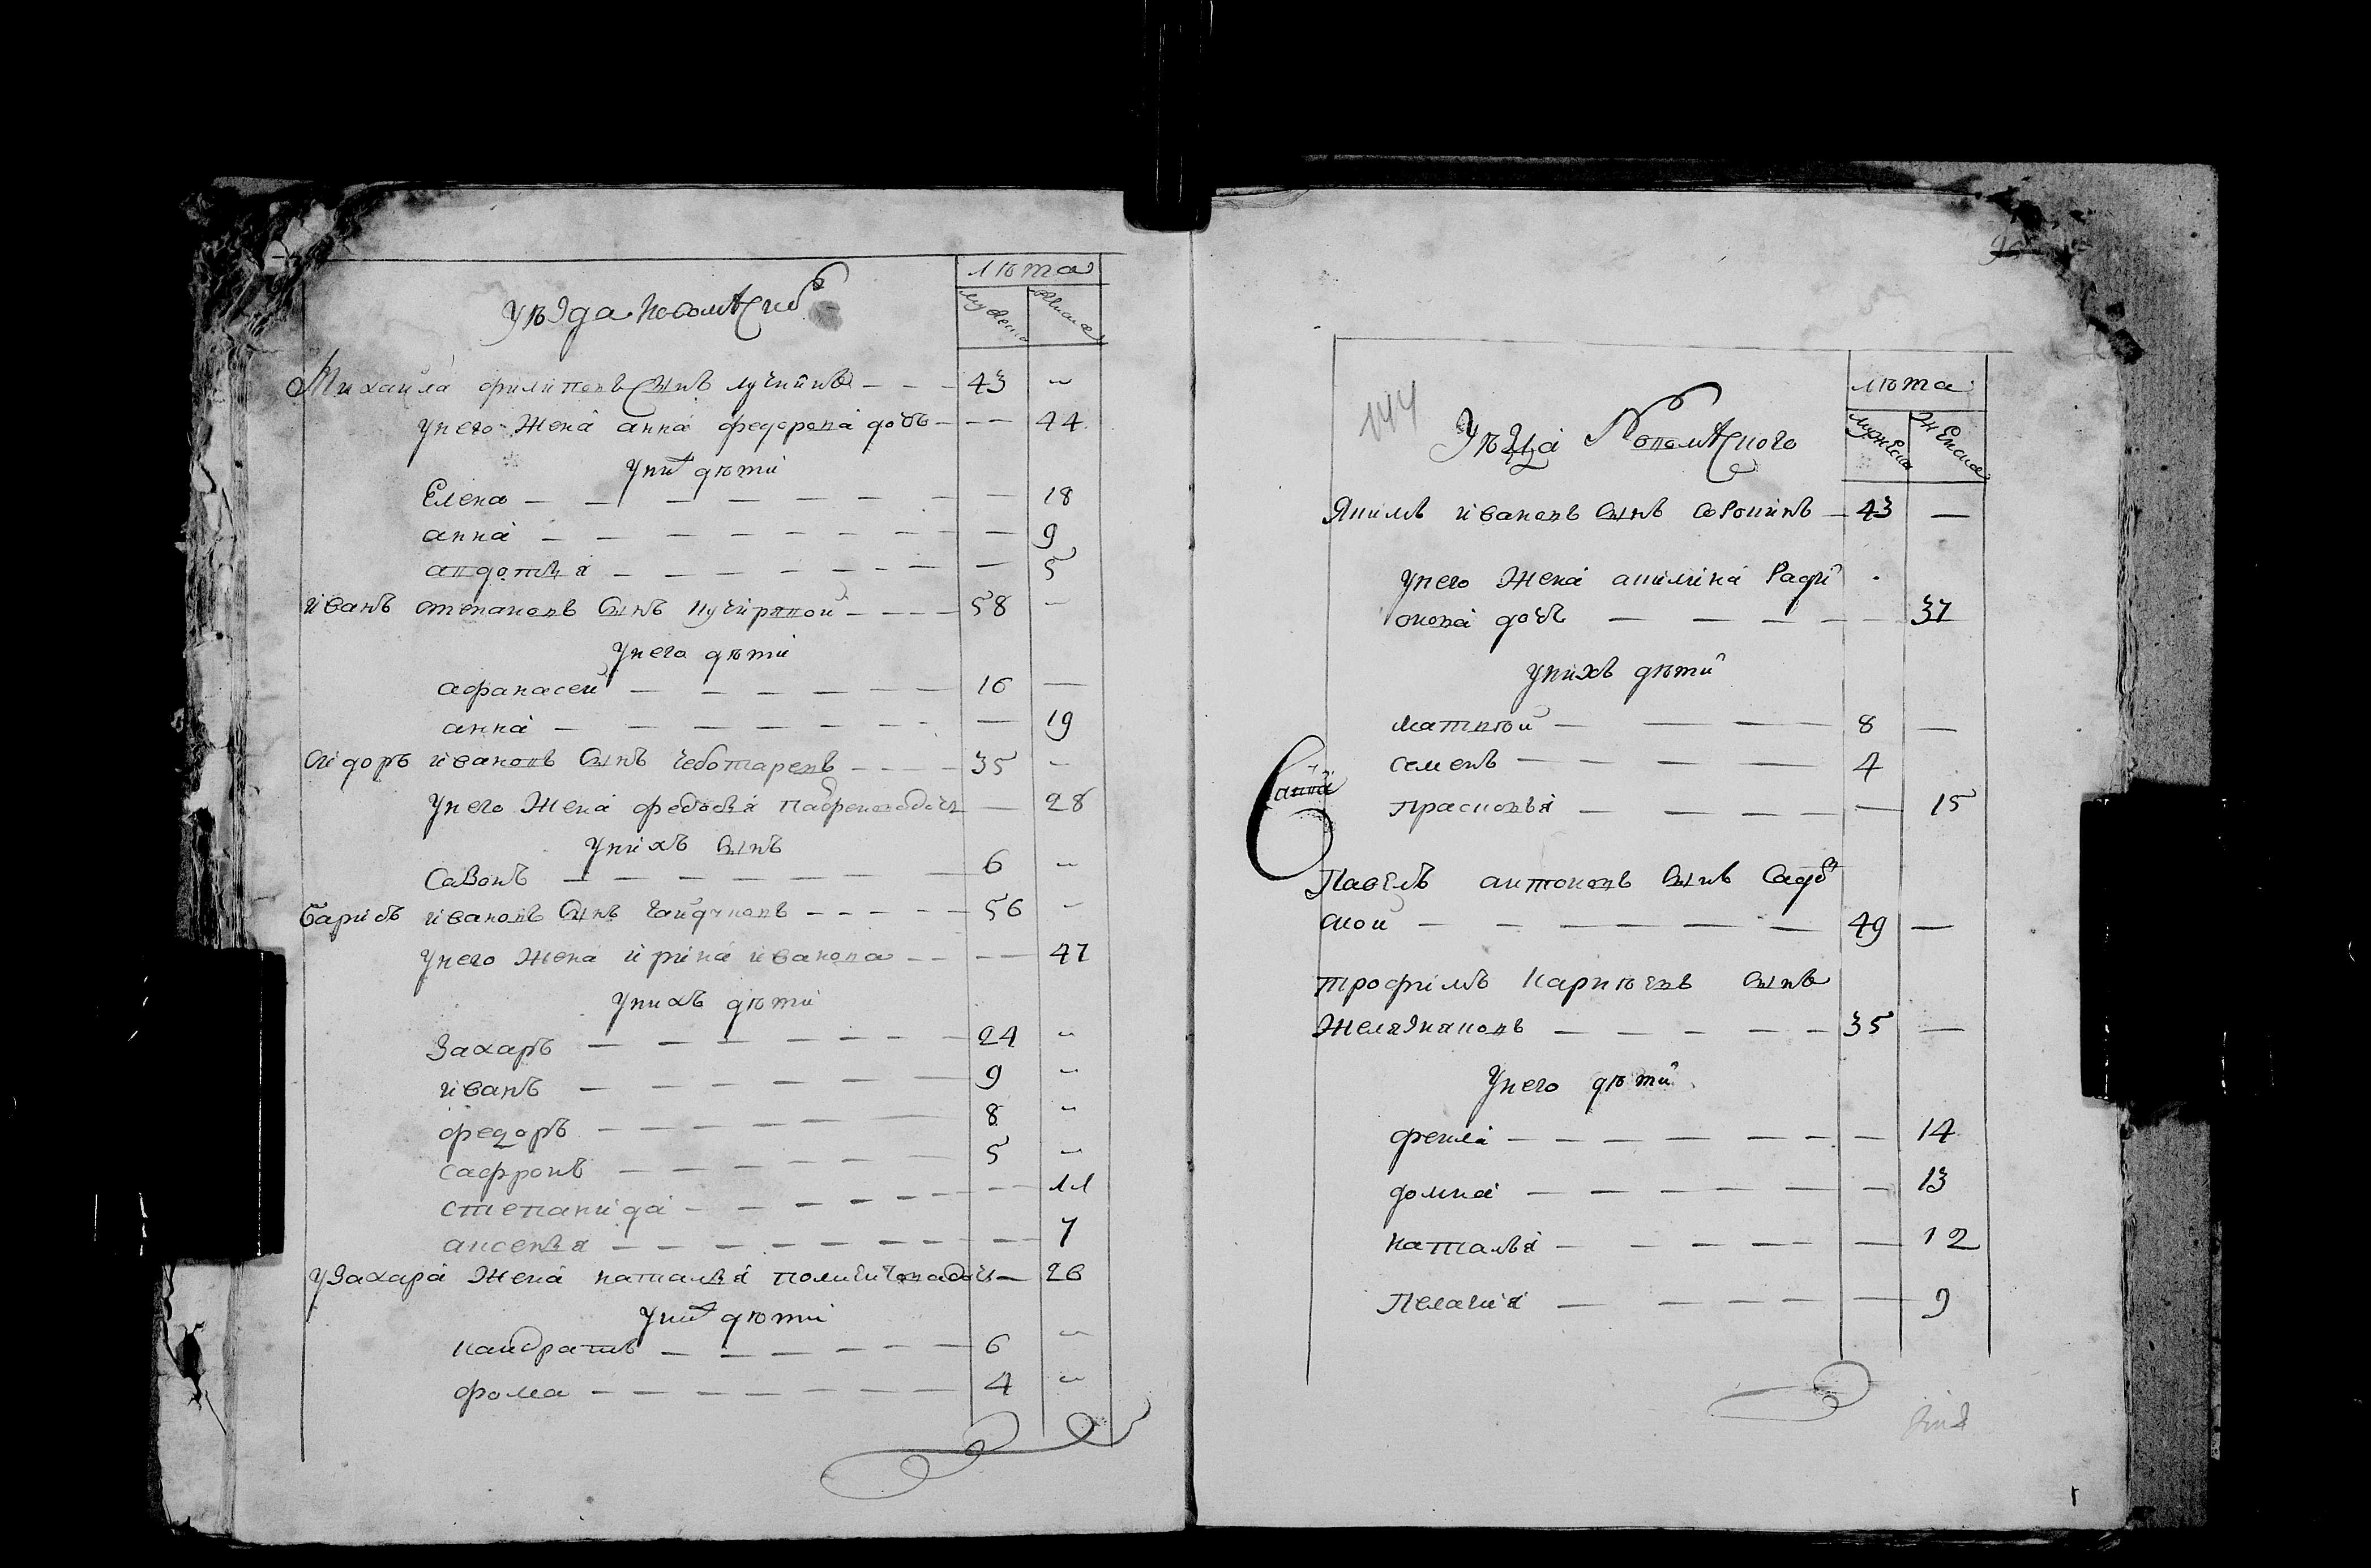 лѣта
Уѣзда коломского
мужеска женска
Михаила филипов сынъ лучинъ 43
у него жена анна федорова дочь 44
у них дѣти
Елена 18
анна 9
авдотья 5
иванъ степановъ сынъ кучерявой 58
у него дѣти
афанасеи 16
анна 19
сидоръ ивановъ сынъ чеботаревъ 35
у него жена федосья
28
у нихъ сынъ
Савонъ 6
барисъ ивановъ сынъ гайдуковъ 56
у него жена ирина иванова 47
у нихъ дѣти
Захаръ 24
иванъ 9
федоръ 8
сафронъ 5
степанида 11
аксенья 7
у Захара жена наталья 26
у них дѣти
кандратъ 6
фома 4
144
лѣта
Уѣзда
мужеска женска
Якимъ ивановъ сынъ сорокинъ 43
у него жена акилина Ради
онова дочь 37
у нихъ дѣти
матвѣй 8
семенъ 4
прасковья 15
анна
Павелъ антоновъ сынъ Садо
ской 49
трофимъ карпѣевъ сынъ
Железняковъ 35
у него дѣти
фекла 14
домна 13
наталья 12
Пелагия 9